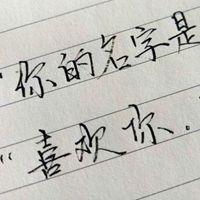 "你的名字是
"喜欢你.